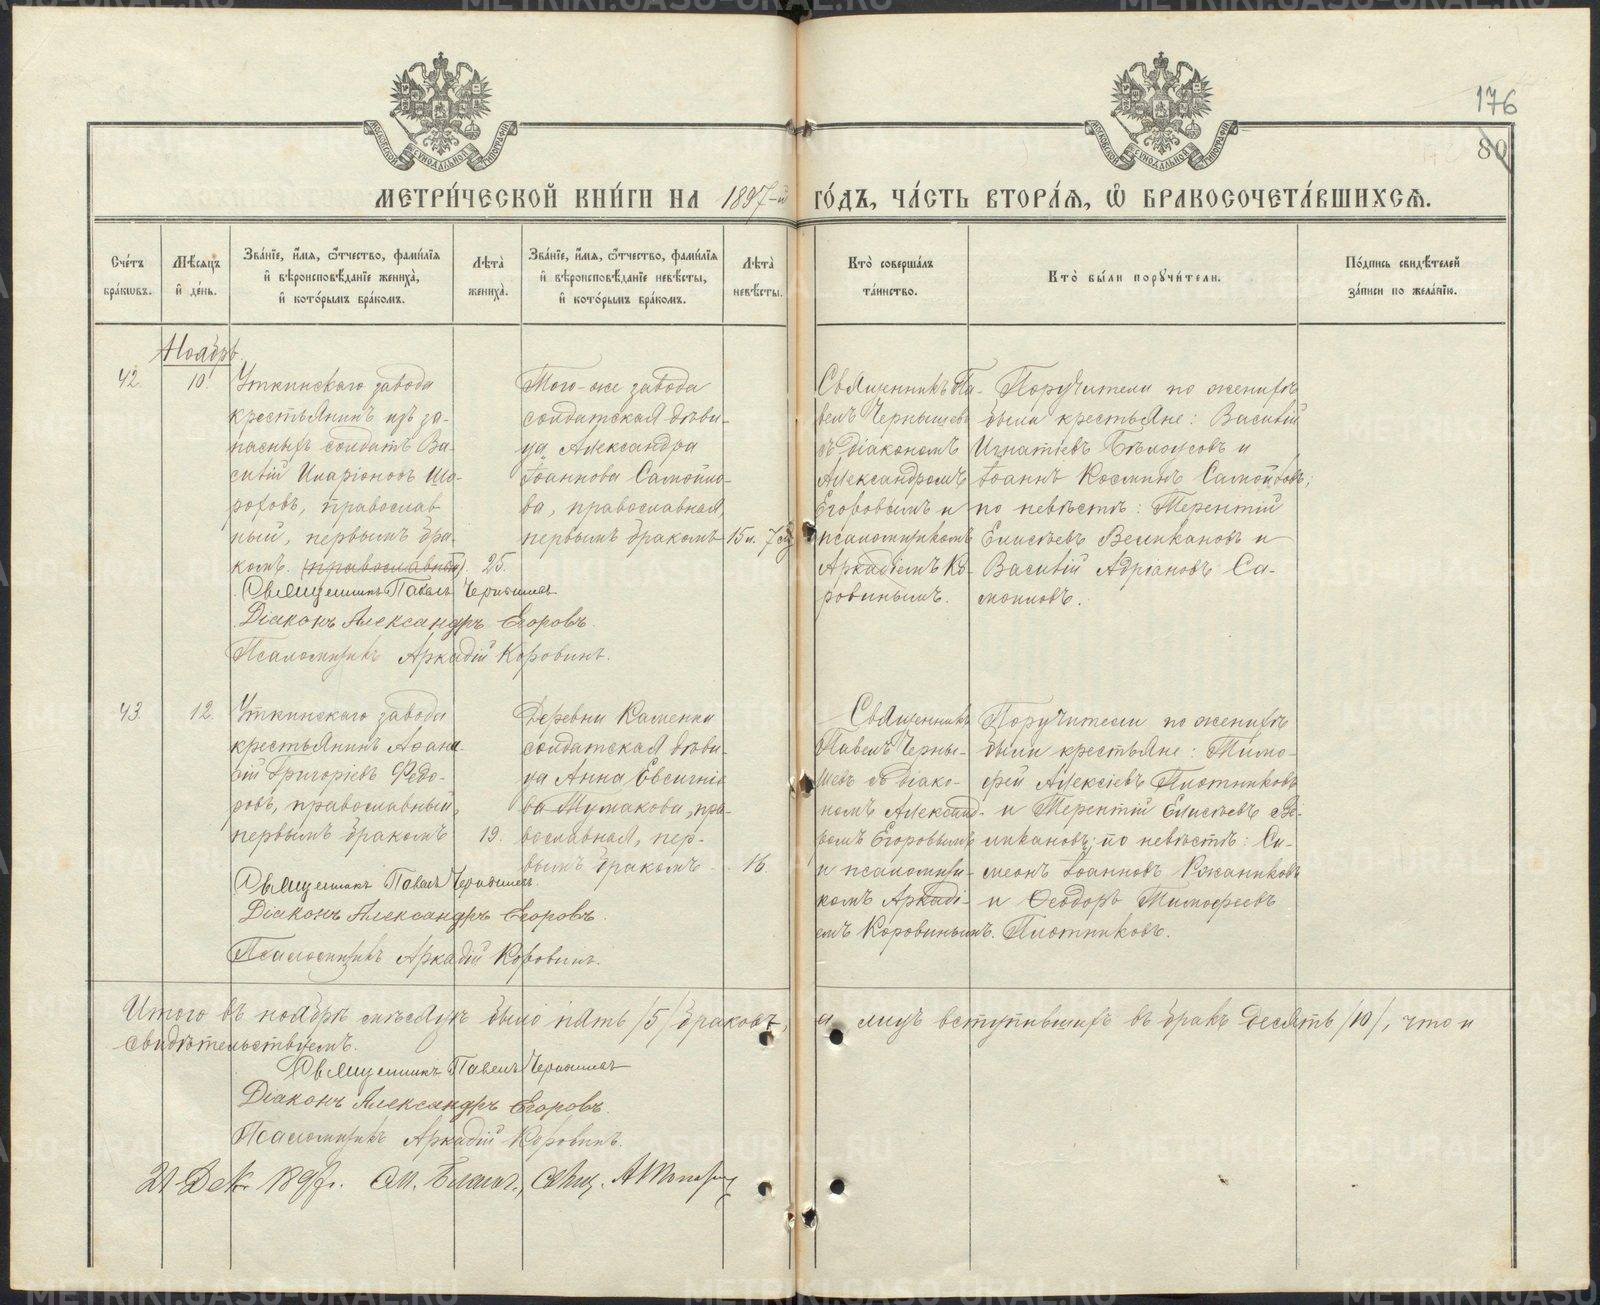 176
80
МЕТРИ́ЧЕСКОЙ КНИ́ГИ НА 1897-й ГО́ДЪ, ЧА́СТЬ ВТОРА́Я, Ѡ҆ БРАКОСОЧЕТА́ВШИХСЯ.
Сче́тъ бра́кѡвъ.
Мѣ́сяцъ и҆ де́нь.
Зва́нїе, и҆́мя, ѻ҆́тчество, фами́лїя и҆ вѣроисповѣ́данїе жениха̀, и҆ кото́рымъ бра́комъ.
Лѣ́та жениха̀.
Зва́нїе, и҆́мя, ѻ҆́тчество, фами́лїя и҆ вѣроисповѣ́данїе невѣ́сты, и҆ кото́рымъ бра́комъ.
Лѣ́та невѣ́сты.
Кто̀ соверша́лъ та́инство.
Кто̀ бы́ли порꙋчи́тели.
По́дпись свидѣ́телей за́писи по жела́нїю.
Ноябрь.
42.
10.
Уткинскаго завода
крестьянинъ изъ за-
пасныхъ солдатъ Ва-
силій Иларіоновъ Шо-
роховъ, православ
ный, первымъ бра-
комъ. (православный).
25.
Того-же завода
солдатская дѣви-
ца Александра
Іоаннова Самойло-
ва, православная,
первымъ бракомъ
15 л. 7 м.
Священникъ Па-
велъ Чернышевъ
съ Діакономъ
Александромъ
Егоровымъ и
псаломщикомъ
Аркадіемъ Ко-
ровинымъ.
Поручители по женихѣ
были крестьяне: Василій
Игнатіевъ Бѣлоусовъ и
Іоаннъ Косминъ Самойловъ;
по невѣстѣ: Терентій
Елисѣевъ Великановъ и
Василій Адріановъ Са-
мойловъ.
Священникъ Павелъ Чернышевъ
Діаконъ Александръ Егоровъ.
Псаломщикъ Аркадій Коровинъ.
43.
12.
Уткинскаго завода
крестьянинъ Афана-
сій Григоріевъ Федо-
ровъ, православный,
первымъ бракомъ
19.
Деревни Каменки
солдатская дѣви-
ца Анна Евсигніе
ва Мумакова, пра-
вославная, пер-
вымъ бракомъ.
16.
Священникъ
Павелъ Черны-
шевъ съ Діако-
номъ Александ-
ромъ Егоровымъ
и псаломщи-
комъ Аркаді-
емъ Коровинымъ.
Поручители по женихѣ
были крестьяне: Тимо-
фей Алексіевъ Плотниковъ
и Терентій Елисѣевъ Ве-
ликановъ; по невѣстѣ: Си-
меонъ Іоанновъ Ржаниковъ
и Ѳеодоръ Тимофеевъ
Плотниковъ.
Священникъ Павелъ Чернышевъ.
Діаконъ Александръ Егоровъ.
Псаломщикъ Аркадій Коровинъ.
Итого въ ноябрѣ мѣсяцѣ было пять /5/ браковъ, а лицъ вступившихъ въ бракъ десять /10/, что и
свидѣтельствуемъ.
Священникъ Павелъ Чернышевъ
Діаконъ Александръ Егоровъ.
Псаломщикъ Аркадій Коровинъ.
21 Дек. 1897 г. Благоч., Свящ.
METRIKI.GASO-URAL.RU